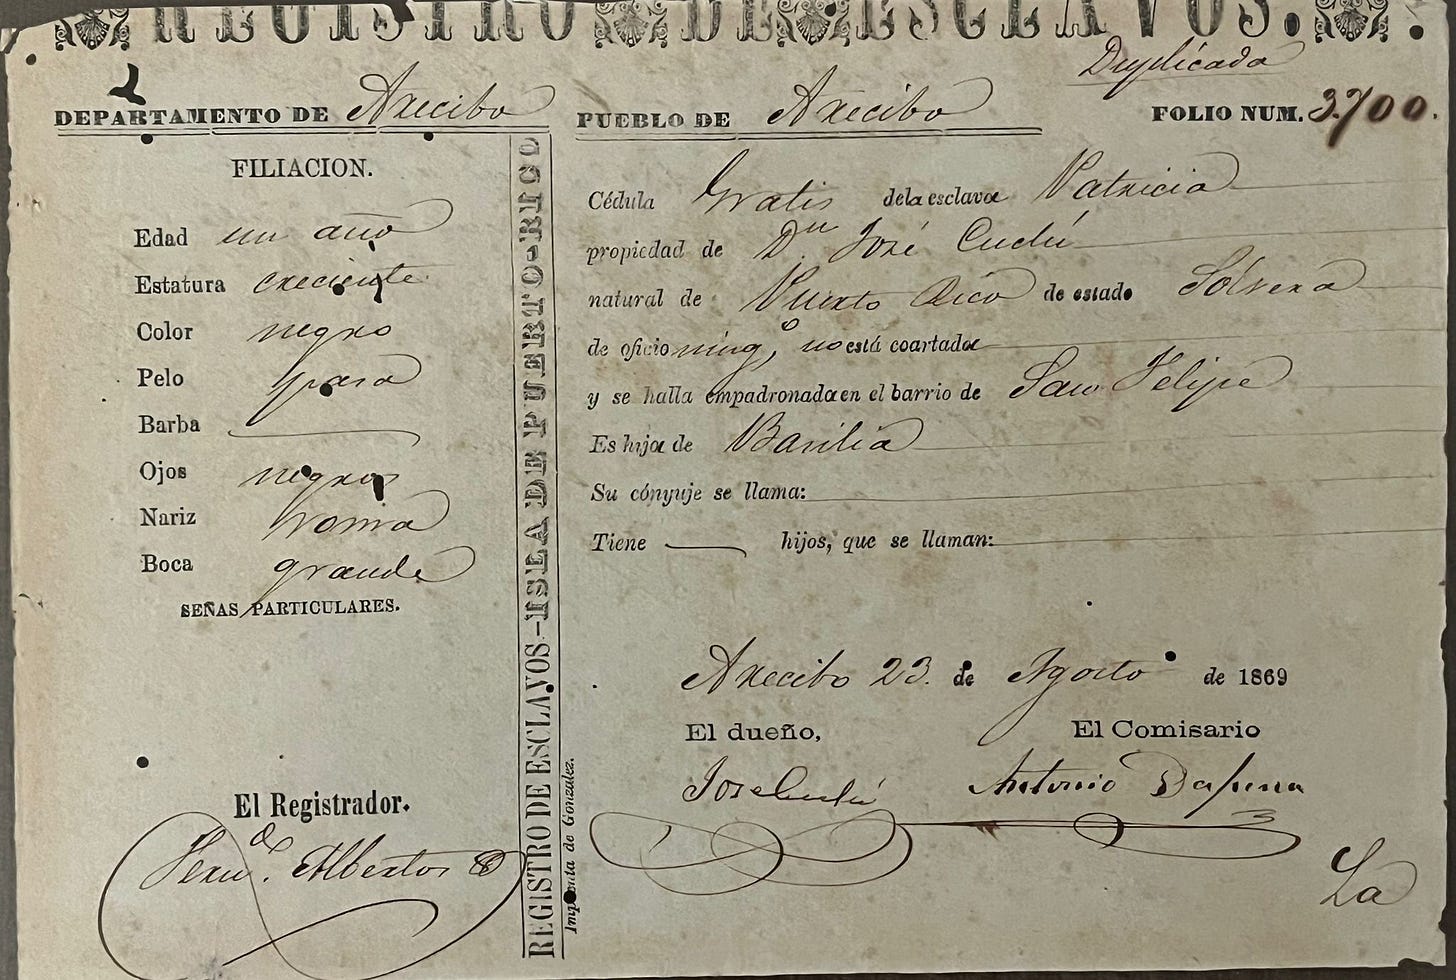 REGISTRO DE ESCLAVOS.
Duplicada
DEPARTAMENTO DE Arecibo
PUEBLO DE Arecibo
FOLIO NUM. 3.700.
FILIACION.
Edad un año
Estatura creciente
Color negro
Pelo pasa
Barba
Ojos negros
Nariz roma
Boca grande
SEÑAS PARTICULARES.
El Registrador.
Fern.do Albertos
REGISTRO DE ESCLAVOS.-ISLA DE PUERTO-RICO
Imprenta de Gonzalez.
Cédula Gratis de la esclava Patricia
propiedad de Dn. José Cudú
natural de Puerto Rico de estado Sólvera
de oficio ning.o, no está coartada
y se halla empadronada en el barrio de San Felipe
Es hija de Basilia
Su cónyuje se llama:
Tiene hijos, que se llaman:
Arecibo 23. de Agosto de 1869
El dueño,
El Comisario
Jose Cudú
Antonio
La